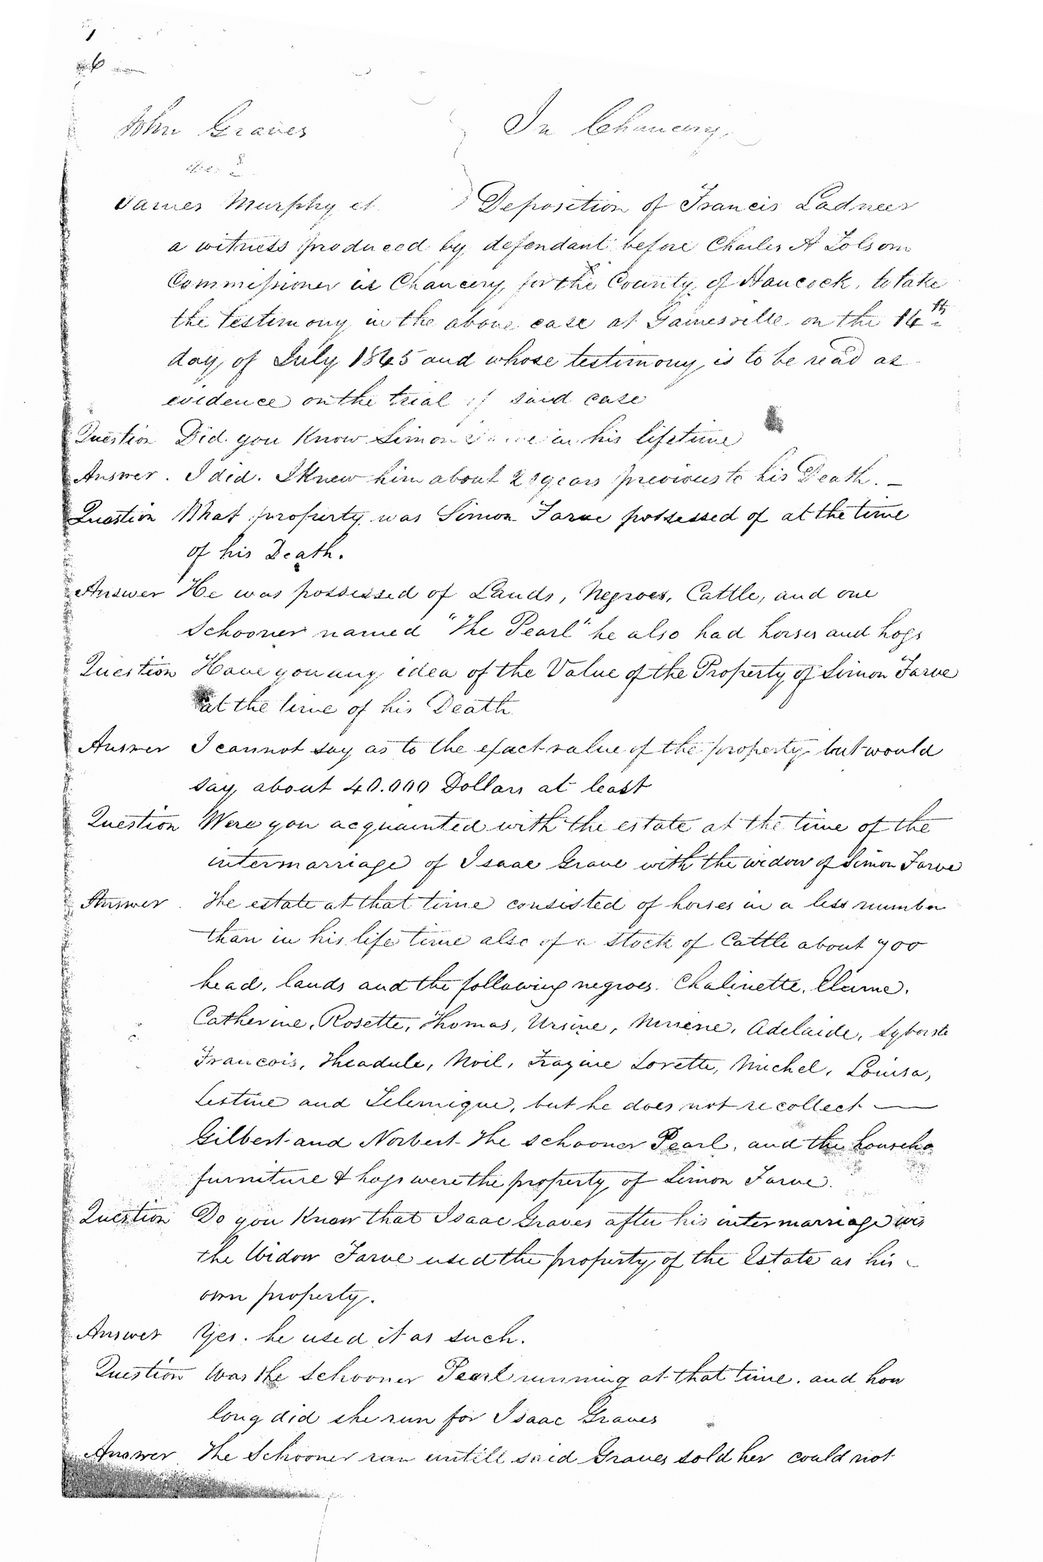 6
John Graves In Chancery
vs
James Murphy et Deposition of Francis Ladneer
a witness produced by defendant before Charles A Tolson
Commissioner in Chancery for the County of Hancock, to take
the testimony in the above case at Gainesville on the 14th
day of July 1845 and whose testimony is to be read as
evidence on the trial of said case
Question Did you Know Simon Farve in his lifetime
Answer. I did. I Knew him about 20 years previous to his Death. _
Question What property was Simon Farve possessed of at the time
of his Death.
Answer He was possessed of Lands, Negroes, Cattle, and one
Schooner named "The Pearl" he also had horses and hogs
Question Have you any idea of the Value of the Property of Simon Farve
at the time of his Death
Answer I cannot say as to the exact value of the property but would
say about 40.000 Dollars at least
Question Were you acquainted with the estate at the time of the
intermarriage of Isaac Grave with the widow of Simon Farve
Answer The estate at that time consisted of horses in a less number
than in his life time also of a stock of Cattle about 700
head, lands and the following negroes. Chalinette,
Catherine, Rosette, Thomas, Ursine, Adelaide,
Francois, Theadule, Noil, Lorette, Michel, Louisa,
Lestine and Telemique, but he does not recollect ——
Gilbert and Norbert The schooner Pearl, and the househo
furniture & hogs were the property of Simon Farve.
Question Do you Know that Isaac Graves after his intermarriage wis
the Widow Farve used the property of the Estate as his
own property.
Answer Yes. he used it as such.
Question Was the Schooner Pearl running at that time. and how
long did she run for Isaac Graves
Answer The Schooner ran untill said Graves sold her could not